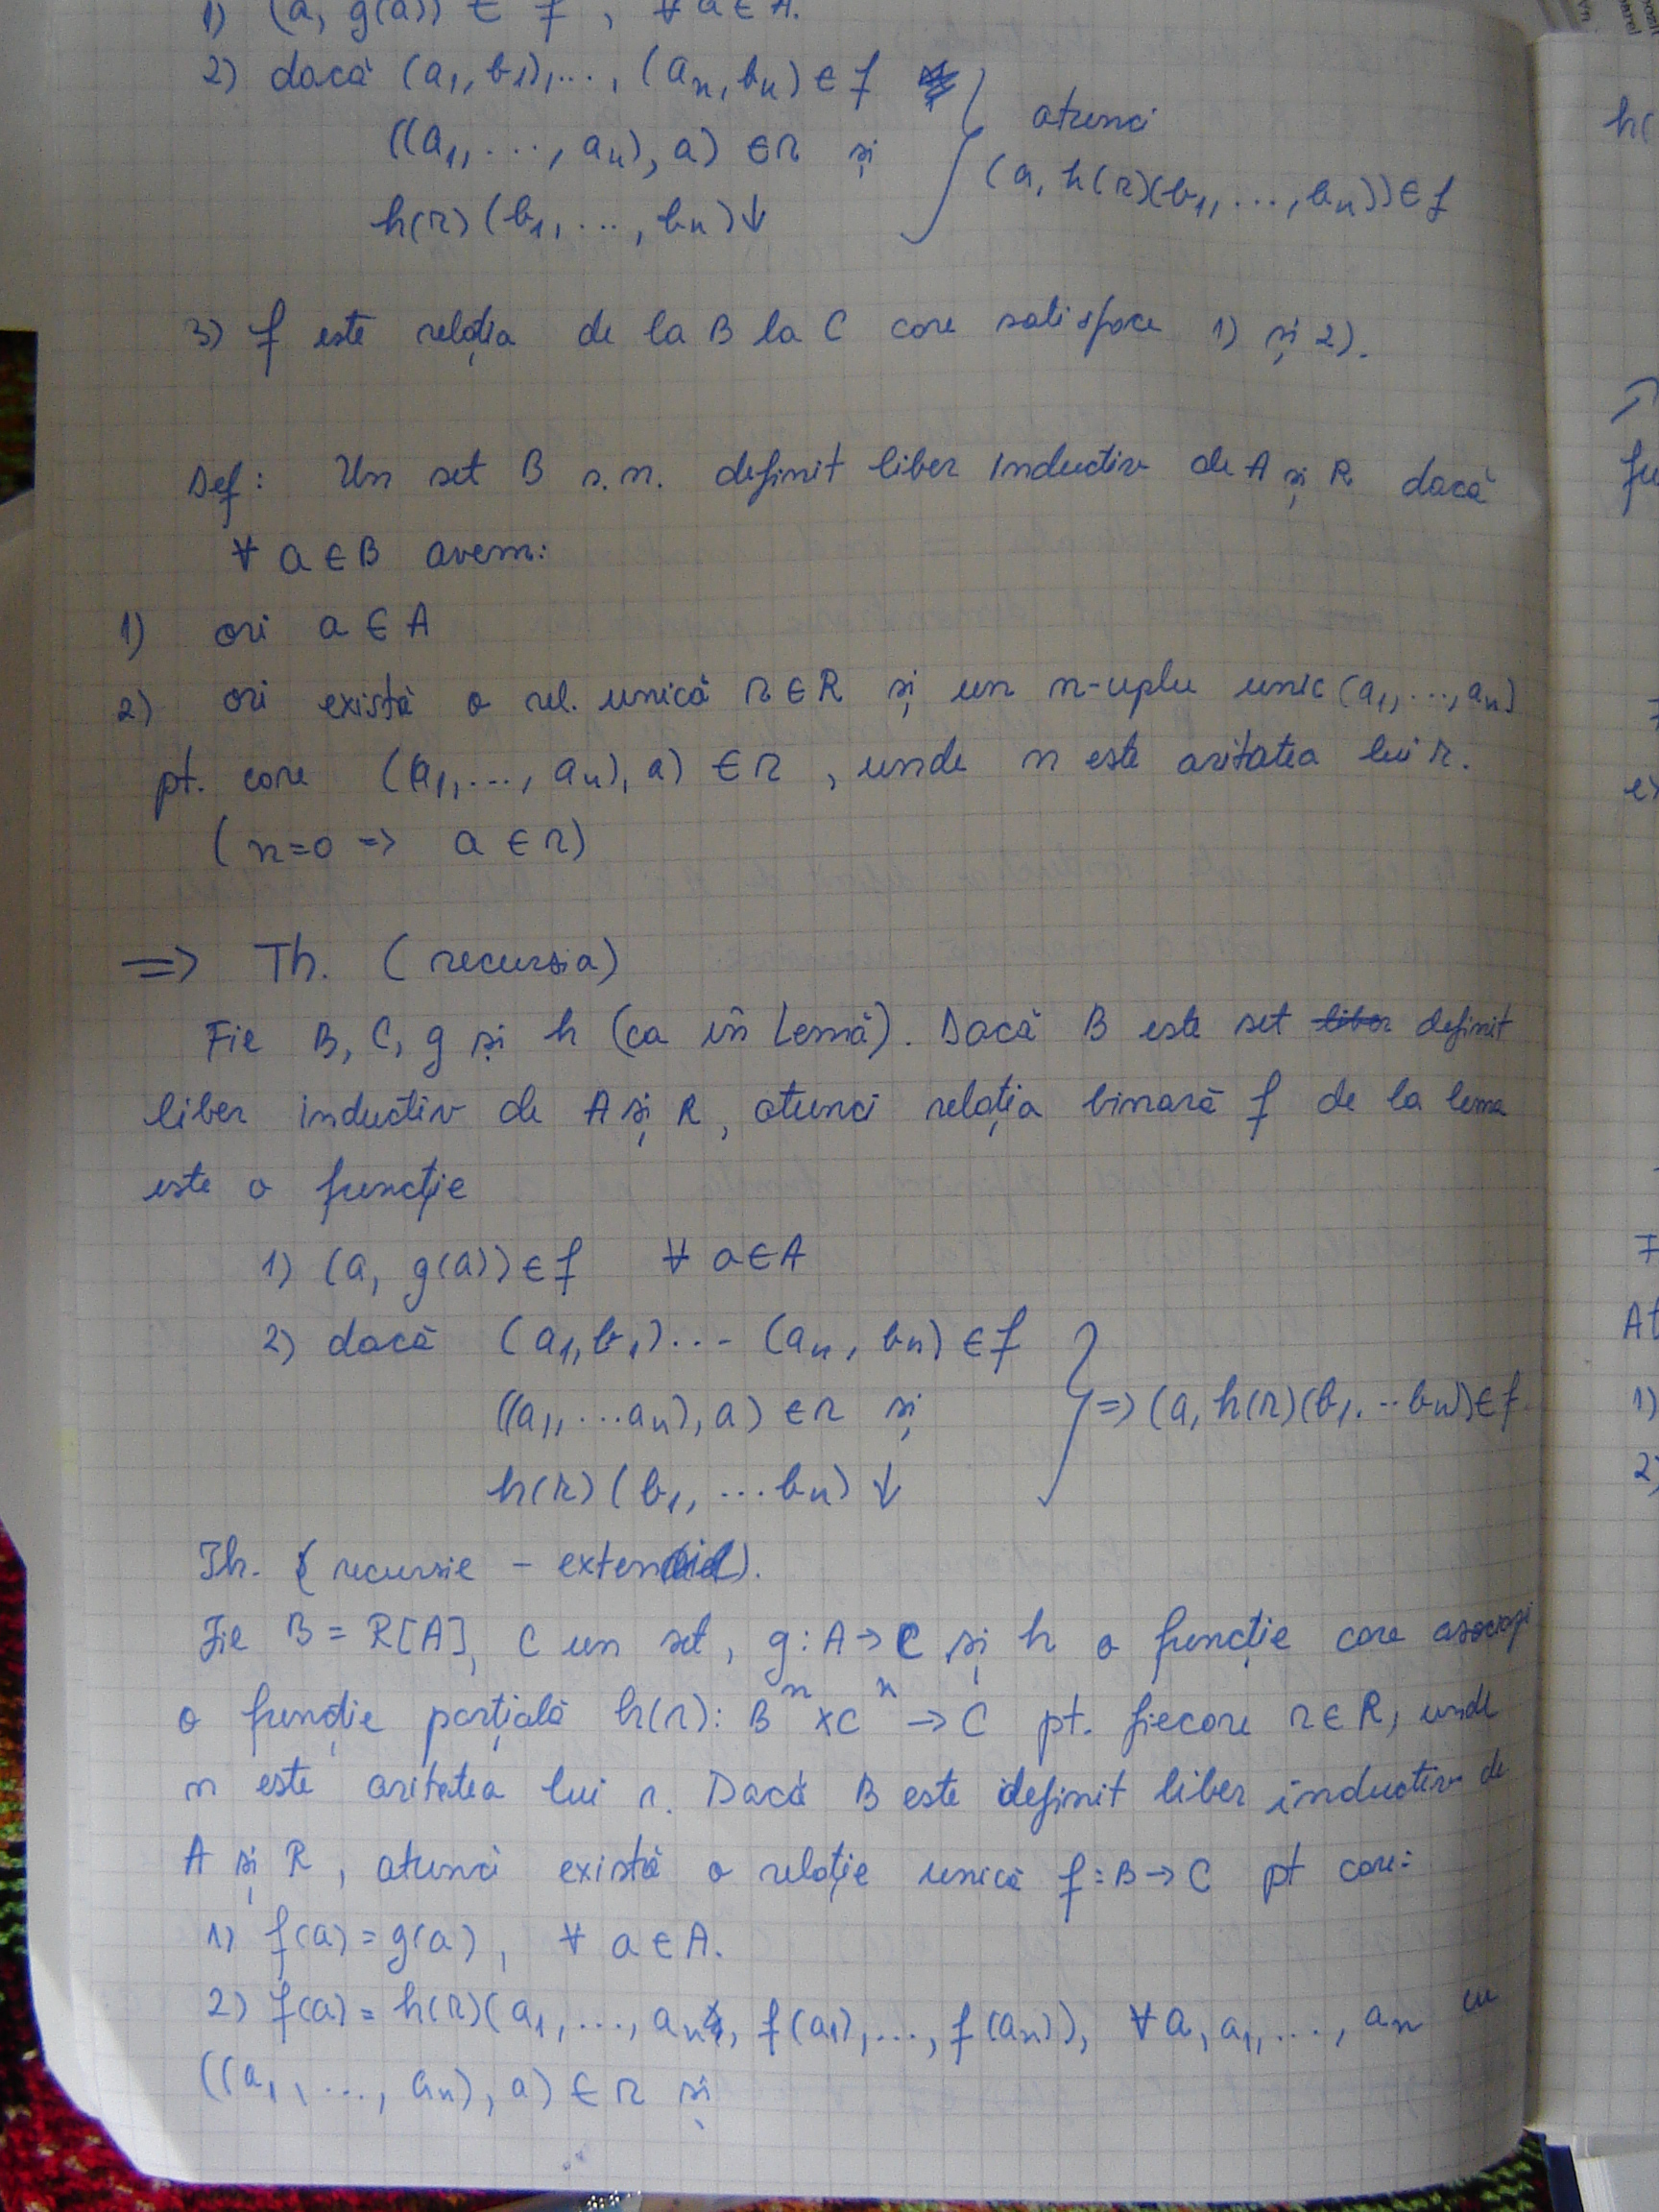 1) (a, g(a)) ∈ f , ∀ a ∈ A.
2) dacă (a1, b1),..., (an, bn) ∈ f
((a1, ..., an), a) ∈ r și
atunci
(a, h(r)(b1, ..., bn)) ∈ f
h(r)(b1, ..., bn)↓
3) f este relația de la B la C care satisface 1) și 2).
Def: Un set B s.n. definit liber inductiv de A și R dacă
∀ a ∈ B avem:
1) ori a ∈ A
2) ori există o rel. unică r ∈ R și un n-uplu unic (a1, ..., an)
pt. care ((a1, ..., an), a) ∈ r , unde n este aritatea lui r.
(n=0 => a ∈ r)
=> Th. (recursia)
Fie B, C, g și h (ca în Lemă). Dacă B este set definit
liber inductiv de A și R, atunci relația binară f de la lema
este o funcție
1) (a, g(a)) ∈ f ∀ a ∈ A
2) dacă (a1, b1)... (an, bn) ∈ f
((a1, ... an), a) ∈ r și
=> (a, h(r)(b1...bn)) ∈ f
h(r)(b1, ... bn)↓
Th. (recursie -
Fie B = R[A], C un set, g: A → C și h o funcție care
o funcție parțială h(r): B^n × C^n → C pt. fiecare r ∈ R, unde
n este aritatea lui r. Dacă B este definit liber inductiv de
A și R, atunci există o relație unică f: B → C pt care:
1) f(a) = g(a), ∀ a ∈ A.
2) f(a) = h(r)(a1, ..., an, f(a1), ..., f(an)), ∀ a, a1, ..., an cu
((a1, ..., an), a) ∈ r și
h(
fu
ex
At
1)
2)